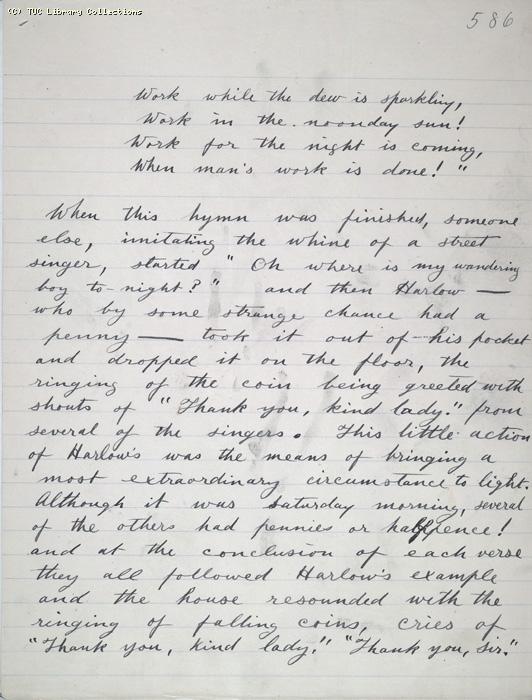 (C) TUC Library Collections
586
Work while the dew is sparkling,
Work in the noonday sun!
Work for the night is coming,
When man's work is done!"
When this hymn was finished, someone
else, imitating the whine of a street
singer, started "Oh where is my wandering
boy to-night?" and then Harlow —
who by some strange chance had a
penny — took it out of his pocket
and dropped it on the floor, the
ringing of the coin being greeted with
shouts of "Thank you, kind lady." from
several of the singers. This little action
of Harlow's was the means of bringing a
most extraordinary circumstance to light.
Although it was Saturday morning, several
of the others had pennies or halfpence!
and at the conclusion of each verse
they all followed Harlow's example
and the house resounded with the
ringing of falling coins, cries of
"Thank you, kind lady." "Thank you, sir."